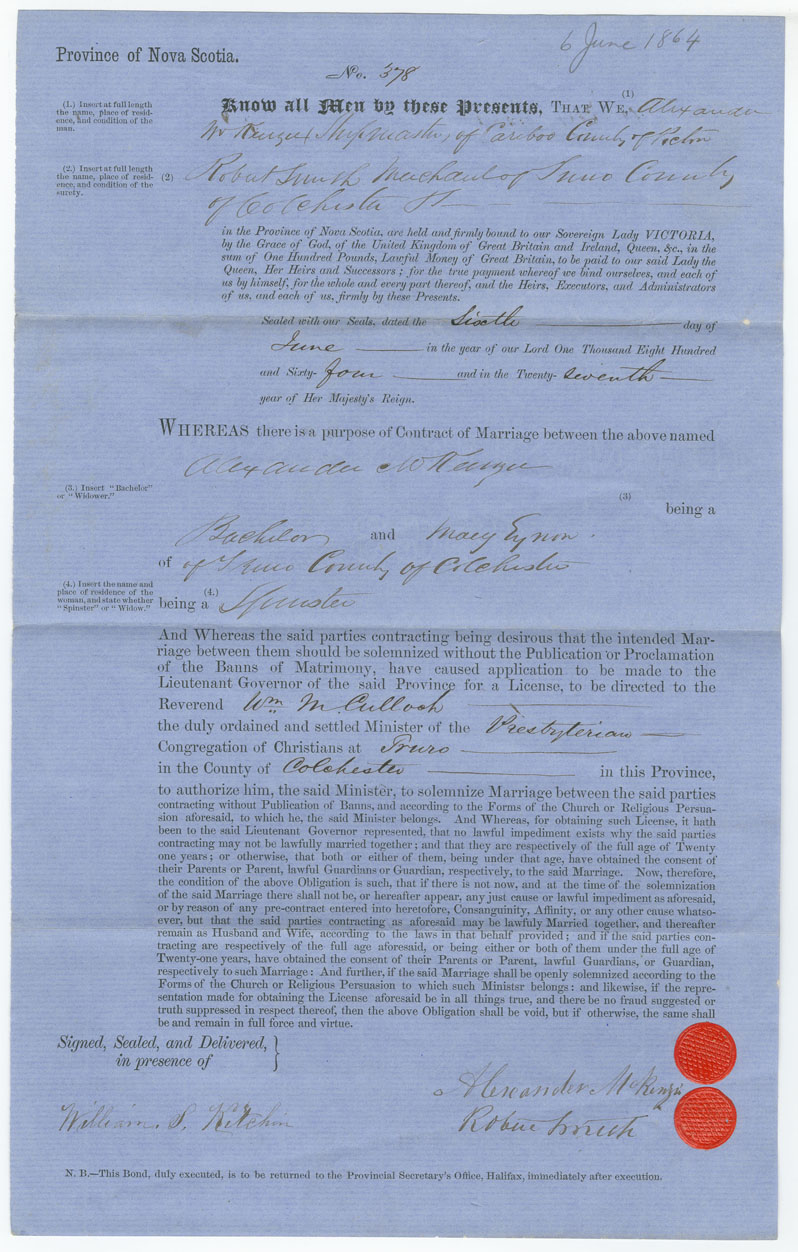 6 June 1864
Province of Nova Scotia.
No. 378
(1)
(1.) Insert at full length
the name, place of resid-
ence, and condition of the
man.
Know all Men by these Presents, THAT WE, Alexander
McKenzie Shipmaster of Cariboo County of Pictou
(2.) Insert at full length
the name, place of resid-
ence, and condition of the
surety.
(2) Robert Smith Merchant of Truro County
of Colchester
in the Province of Nova Scotia, are held and firmly bound to our Sovereign Lady VICTORIA,
by the Grace of God, of the United Kingdom of Great Britain and Ireland, Queen, &c., in the
sum of One Hundred Pounds, Lawful Money of Great Britain, to be paid to our said Lady the
Queen, Her Heirs and Successors; for the true payment whereof we bind ourselves, and each of
us by himself, for the whole and every part thereof, and the Heirs, Executors, and Administrators
of us, and each of us, firmly by these Presents.
Sealed with our Seals, dated the Sixth day of
June in the year of our Lord One Thousand Eight Hundred
and Sixty- four and in the Twenty- seventh
year of Her Majesty's Reign.
WHEREAS there is a purpose of Contract of Marriage between the above named
Alexander McKenzie
(3.) Insert "Bachelor"
or "Widower."
(3)
being a
Bachelor and Mary Eynon
of of Truro County of Colchester
(4.) Insert the name and
place of residence of the
woman, and state whether
"Spinster" or "Widow."
(4.)
being a Spinster
And Whereas the said parties contracting being desirous that the intended Mar-
riage between them should be solemnized without the Publication or Proclamation
of the Banns of Matrimony, have caused application to be made to the
Lieutenant Governor of the said Province for a License, to be directed to the
Reverend Wm McCulloch
the duly ordained and settled Minister of the Presbyterian
Congregation of Christians at Truro
in the County of Colchester in this Province,
to authorize him, the said Minister, to solemnize Marriage between the said parties
contracting without Publication of Banns, and according to the Forms of the Church or Religious Persua-
sion aforesaid, to which he, the said Minister belongs. And Whereas, for obtaining such License, it hath
been to the said Lieutenant Governor represented, that no lawful impediment exists why the said parties
contracting may not be lawfully married together; and that they are respectively of the full age of Twenty
one years; or otherwise, that both or either of them, being under that age, have obtained the consent of
their Parents or Parent, lawful Guardians or Guardian, respectively, to the said Marriage. Now, therefore,
the condition of the above Obligation is such, that if there is not now, and at the time of the solemnization
of the said Marriage there shall not be, or hereafter appear, any just cause or lawful impediment as aforesaid,
or by reason of any pre-contract entered into heretofore, Consanguinity, Affinity, or any other cause whatso-
ever, but that the said parties contracting as aforesaid may be lawfuly Married together, and thereafter
remain as Husband and Wife, according to the laws in that behalf provided; and if the said parties con-
tracting are respectively of the full age aforesaid, or being either or both of them under the full age of
Twenty-one years, have obtained the consent of their Parents or Parent, lawful Guardians, or Guardian,
respectively to such Marriage: And further, if the said Marriage shall be openly solemnized according to the
Forms of the Church or Religious Persuasion to which such Ministsr belongs: and likewise, if the repre-
sentation made for obtaining the License aforesaid be in all things true, and there be no fraud suggested or
truth suppressed in respect thereof, then the above Obligation shall be void, but if otherwise, the same shall
be and remain in full force and virtue.
Signed, Sealed, and Delivered,
in presence of
Alexander McKenzie
William S. Kitchin
Robert Smith
N. B.—This Bond, duly executed, is to be returned to the Provincial Secretary's Office, Halifax, immediately after execution.